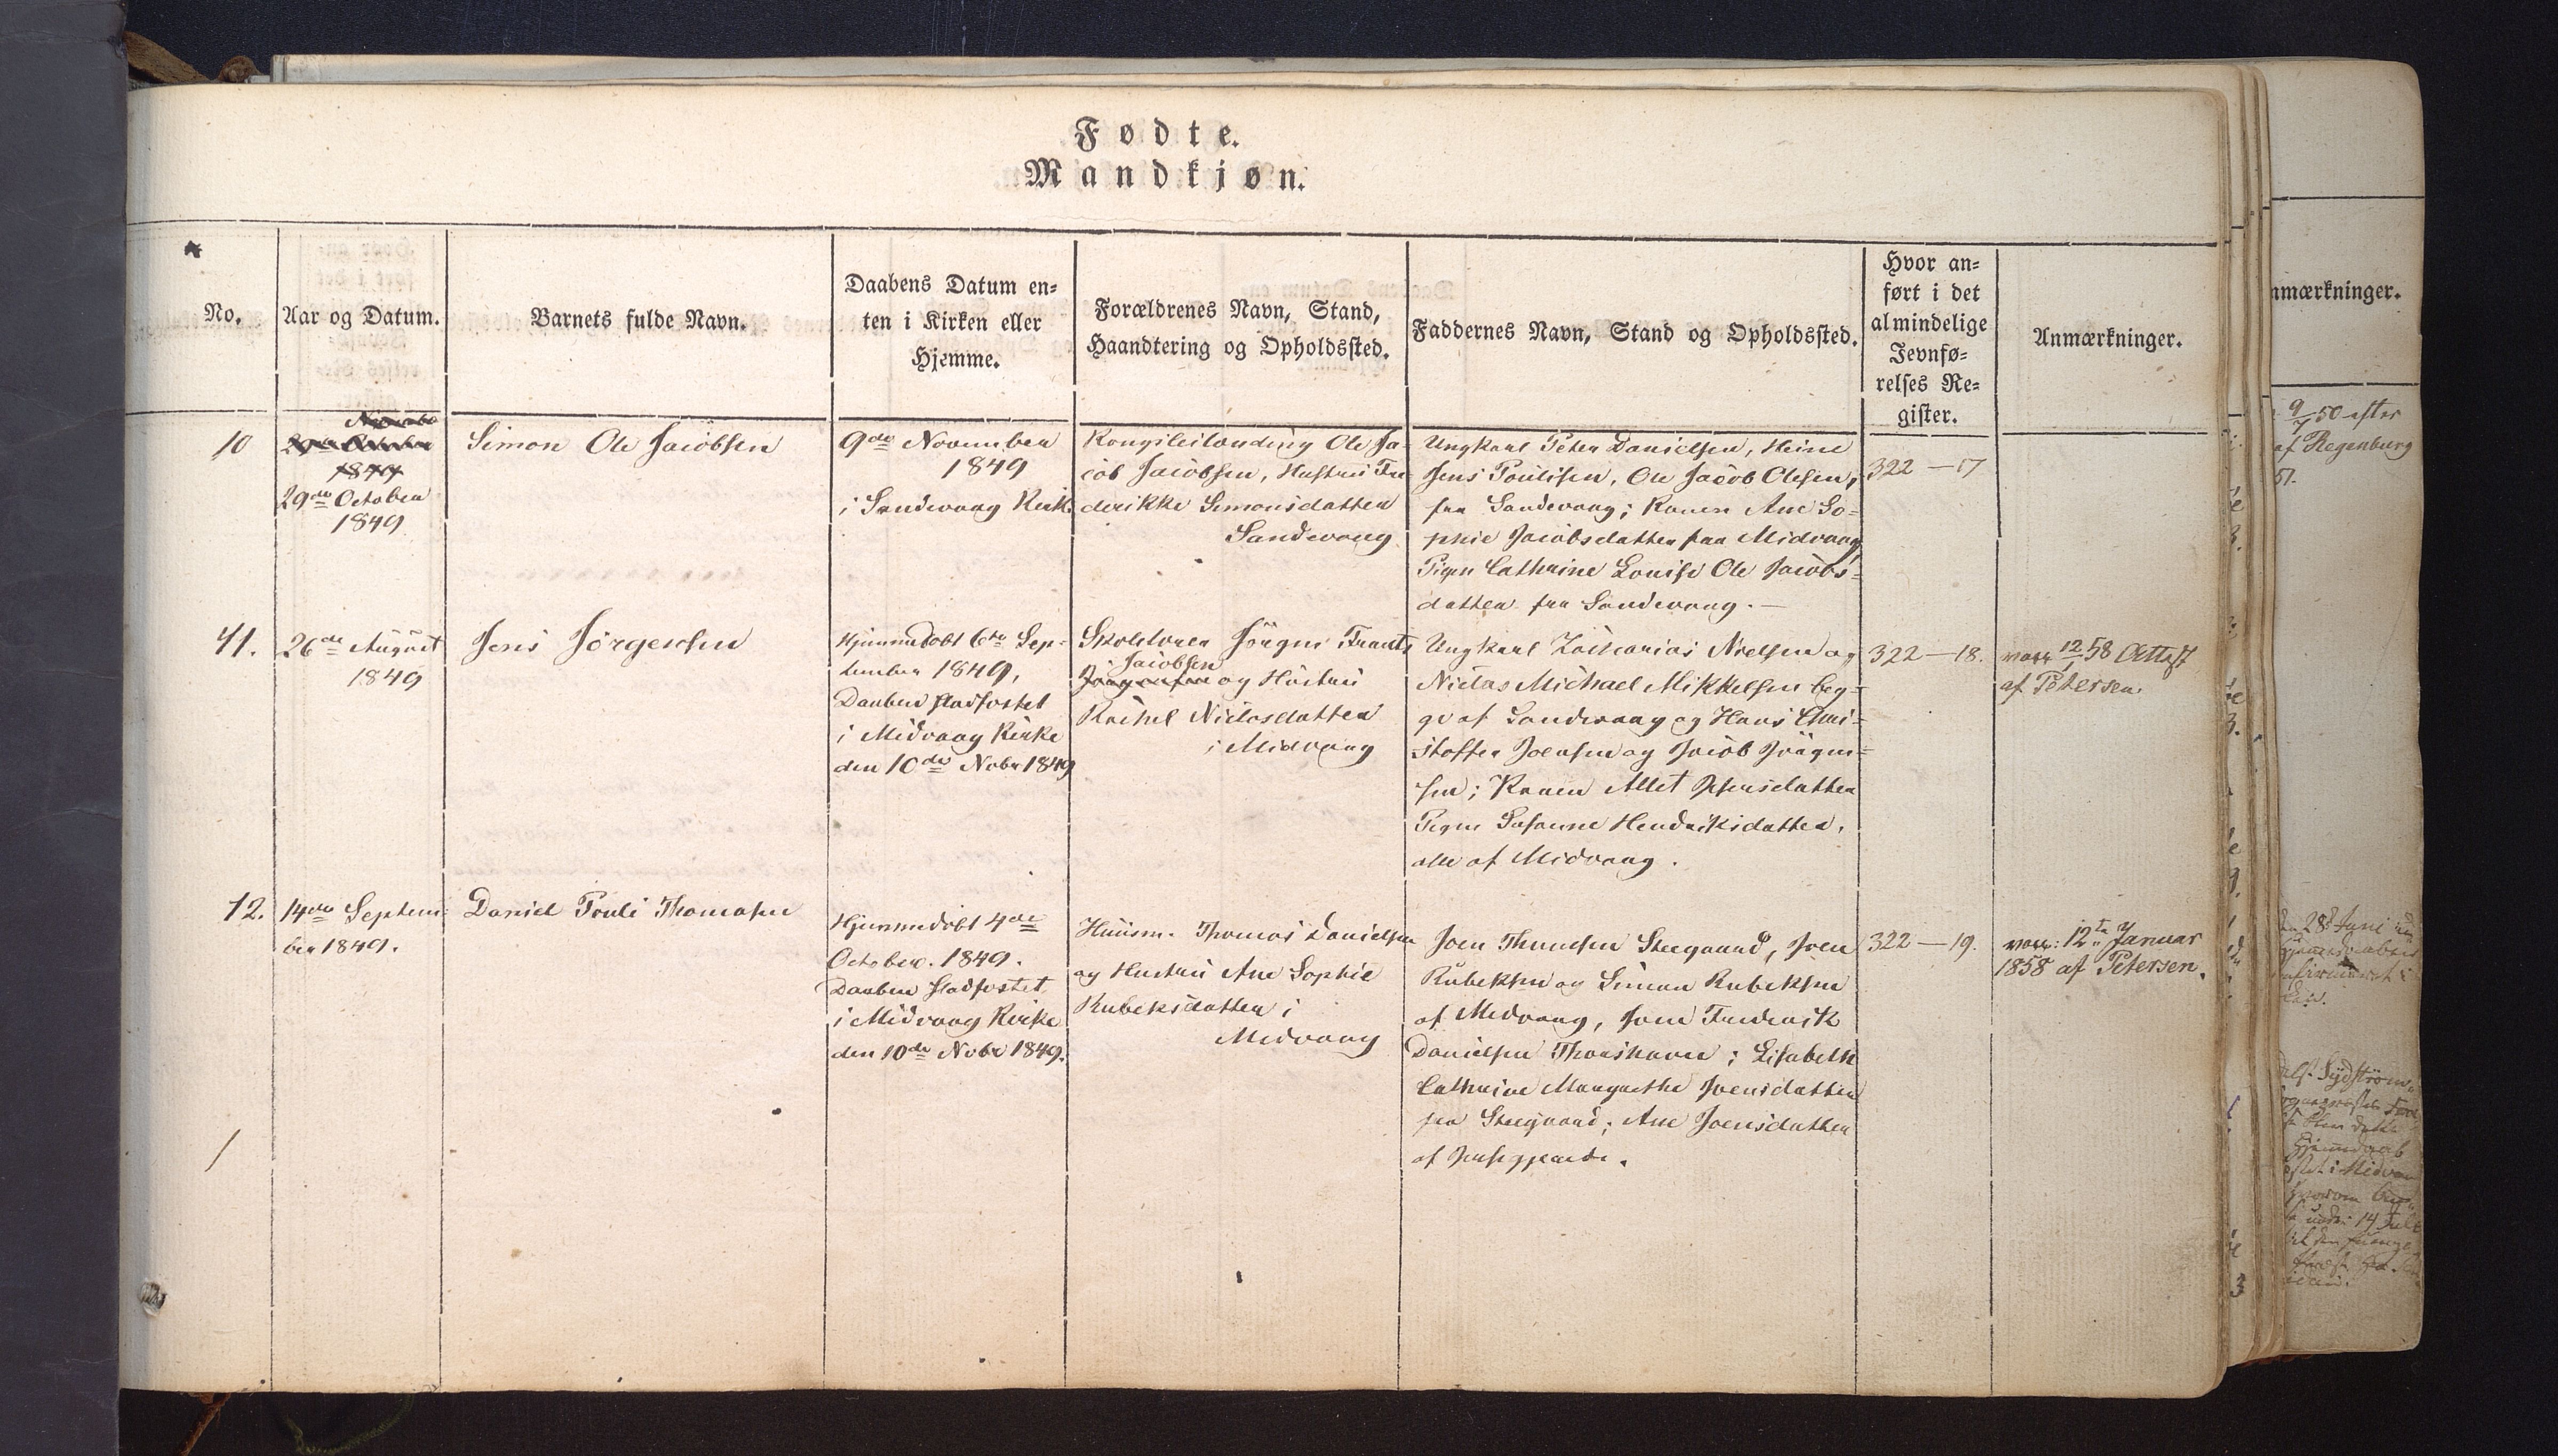 Fødte.
Mandkjøn.
No.
Aar og Datum.
Barnets fulde Navn.
Daabens Datum en-
ten i Kirken eller
Hjemme.
Forældrenes Navn, Stand,
Haandtering og Opholdssted.
Faddernes Navn, Stand og Opholdssted.
Hvor an-
ført i det
almindelige
Jevnfø-
relses Re-
gister.
Anmærkninger.
10
29de October
1849
29de October
1849
Simon Ole Jacobsen
9de November
1849
i Sandevaag Kirke
Kongsleilænding Ole Ja-
cob Jacobsen, Hustru Fre
derikke Simonsdatter
Sandevaag
Ungkarl Peter Danielsen, Heine
Jens Poulsen, Ole Jacob Olesen,
fra Sandevaag; Konen Ane So-
phie Jacobsdatter fra Midvaag,
Pigen Cathrine Louise Ole Jacobs-
datter fra Sandevaag. —
322 — 17
11.
26de August
1849
Jens Jörgensen
Hjemmedöbt 6te Sep-
tember 1849,
Daaben stadfæstet
i Midvaag Kirke
den 10de Nobr 1849
Skolelærer Jörgen Frants
Jacobsen
og Hustru
Rachel Niclasdatter
i Midvaag
Ungkarl Zacharias Nielsen og
Niclas Michael Mikkelsen beg-
ge af Sandevaag og Hans Chri-
stoffer Joensen og Jacob Jörgen-
sen; Konen
Pigen Susanne Hendriksdatter,
alle af Midvaag.
322 — 18.
vacc 12/1 58 Attest
af Petersen.
12.
14de Septem-
ber 1849.
Daniel Pouli Thomasen
Hjemmedöbt 4de
October. 1849.
Daaben stadfæstet
i Midvaag Kirke
den 10de Nobr 1849.
Huusm. Thomas Danielsen
og Hustru Ane Sophie
Rubeksdatter i
Midvaag
Joen Thomesen Steegaard, Joen
Rubeksen og Simon Rubeksen
af Midvaag, Joen Frederik
Danielsen Thorshavn; Lisabeth
Cathrine Margrethe Joensdatter
fra Steegaard; Ane Joensdatter
af
322 — 19.
vacc: 12te Januar
1858 af Petersen.
nmærkninger.
9/7 50 efter
af Regenburg
51.
28de Juni
14 Juli